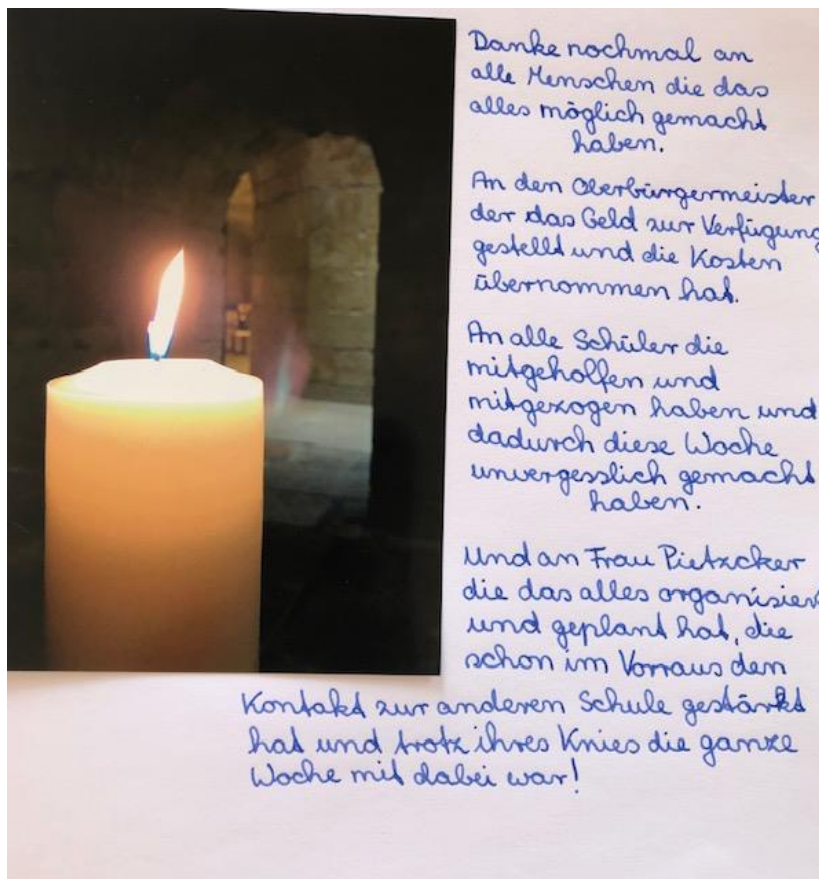 Danke nochmal an
alle Menschen die das
alles möglich gemacht
haben.
An den Oberbürgermeister
der das Geld zur Verfügung
gestellt und die Kosten
übernommen hat.
An alle Schüler die
mitgeholfen und
mitgezogen haben und
dadurch diese Woche
unvergesslich gemacht
haben.
Und an Frau Pietzcker
die das alles organisiert
und geplant hat, die
schon im Vorraus den
Kontakt zur anderen Schule gestärkt
hat und trotz ihres Knies die ganze
Woche mit dabei war!